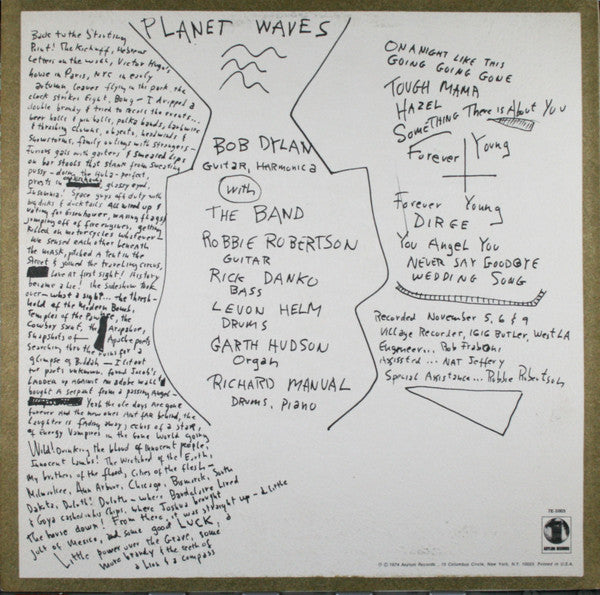 PLANET WAVES
Back to the Starting
Point! The Kickoff, Hebrew
Letters on the wall, Victor Hugo's
house in Paris, NYC in early
autumn, leaves flying in the park, the
clock strikes Eight, Bong - I dropped a
double brandy & tried to recall the events...
beer halls & pin balls, polka bands, barbwire
& thrashing clowns, objects, headwinds &
Snowstorms, family outings with strangers -
Furious gals with garters & smeared Lips
on bar stools that stank from sweating
pussy - doing the Hula - perfect,
priests in overhauls, glassy eyed,
Insomnia! Space guys off duty with
big dicks & ducktails all wired up &
voting for Eisenhower, waving flags &
jumping off of fire engines, getting
killed on motorcycles whatever -
We sensed each other beneath
the mask, pitched a tent in the
Street & joined the traveling circus,
Love at first sight! History
became a Lie! the sideshow took
over - what a sight... the thresh-
hold of the Modern Bomb,
Temples of the Pawnee, the
Cowboy saint, the Arapahoe,
Snapshots of Apache poets
Searching thru the ruins for a
glimpse of Buddah - I lit out
for parts unknown, found Jacob's
Ladder up against an adobe wall &
bought a serpent from a passing angel -
Yeah the ole days are gone
forever And the new ones Aint far behind, the
Laughter is fading away, echos of a star,
of Energy Vampires in the Gone World going
Wild! Drinking the blood of innocent people,
Innocent Lambs! The Wretched of the Earth,
My brothers of the flood, Cities of the flesh -
Milwaukee, Ann Arbor, Chicago, Bismarck, South
Dakota, Duluth! Duluth - where Baudelaire Lived
& Goya cashed in his Chips, where Joshua brought
the house down! From there, it was straight up - a Little
jolt of Mexico, and some good LUCK, a
Little power over the Grave, some
more brandy & the teeth of
a Lion & a compass
BOB DYLAN
GUITAR, HARMONICA
with
THE BAND
ROBBIE ROBERTSON
GUITAR
RICK DANKO
BASS
LEVON HELM
DRUMS
GARTH HUDSON
Organ
RICHARD MANUAL
DRUMS, PIANO
ON A NIGHT LIKE THIS
GOING GOING GONE
TOUGH MAMA
HAZEL
SOMETHING There is About You
Forever Young
Forever Young
DIRGE
You Angel You
NEVER SAY GOODBYE
WEDDING SONG
Recorded November 5, 6 & 9
Village Recorder, 1616 Butler, West LA
Engineer... Rob Fraboni
Assisted... NAT Jeffery
Special Assistance... Robbie Robertson
7E-1003
ASYLUM RECORDS
℗ © 1974 Asylum Records . 15 Columbus Circle, New York, N.Y. 10023 Printed in U.S.A.